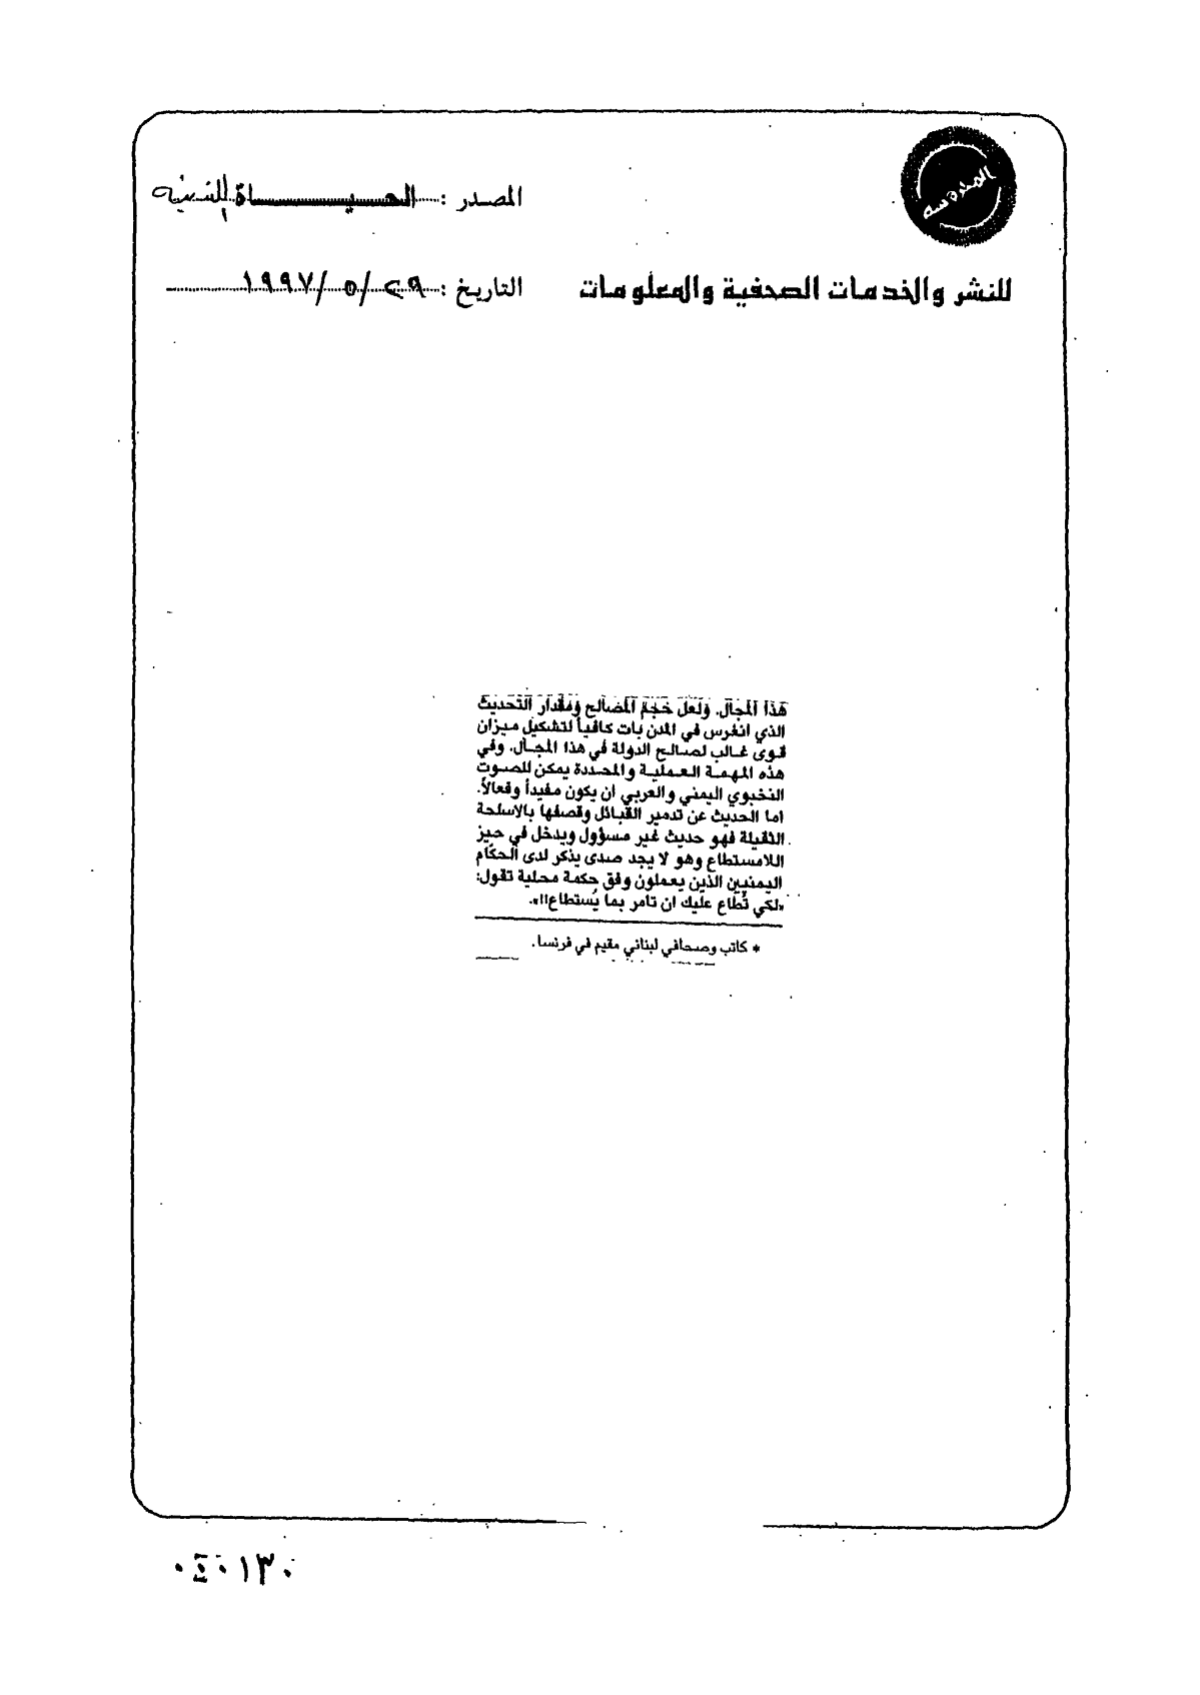 المدروسه
المصدر : الحياة اللندنيه
للنشر والخدمات الصحفية والمعلومات
التاريخ : ٢٩/ ٥/ ١٩٩٧
هذا المجال. ولعل حجم المصالح ومقدار التحديث
الذي انغرس في المدن بات كافياً لتشكيل ميزان
قوى غالب لصالح الدولة في هذا المجال. وفي
هذه المهمة العملية والمحددة يمكن للصوت
النخبوي اليمني والعربي ان يكون مفيداً وفعالاً.
اما الحديث عن تدمير القبائل وقصفها بالاسلحة
الثقيلة فهو حديث غير مسؤول ويدخل في حيز
اللامستطاع وهو لا يجد صدى يذكر لدى الحكّام
اليمنيين الذين يعملون وفق حكمة محلية تقول:
«لكي تُطاع عليك ان تامر بما يُستطاع!!».
* كاتب وصحافي لبناني مقيم في فرنسا.